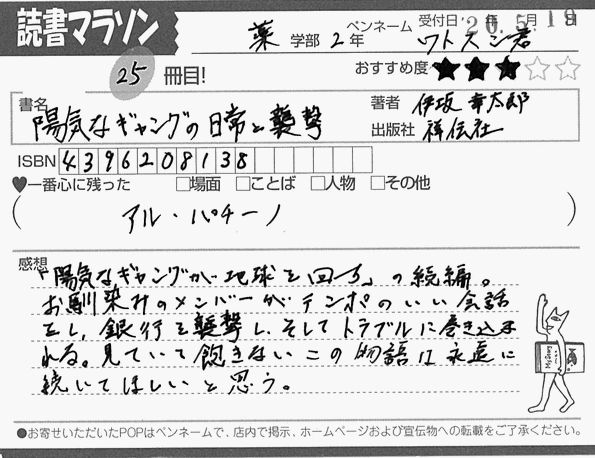 読書マラソン
薬 学部 2年 ペンネーム ワトスン君 受付日 '20.5.19
25 冊目! おすすめ度 ★★★☆☆
書名 陽気なギャングの日常と襲撃
著者 伊坂 幸太郎
出版社 祥伝社
ISBN 4396208138
♥一番心に残った □場面 □ことば □人物 □その他
( アル・パチーノ )
感想
「陽気なギャングが地球を回す」の続編。
お馴染みのメンバーがテンポのいい会話
をし、銀行を襲撃し、そしてトラブルに巻き込ま
れる。見ていて飽きないこの物語は永遠に
続いてほしいと思う。
●お寄せいただいたPOPはペンネームで、店内で掲示、ホームページおよび宣伝物への転載をご了承ください。